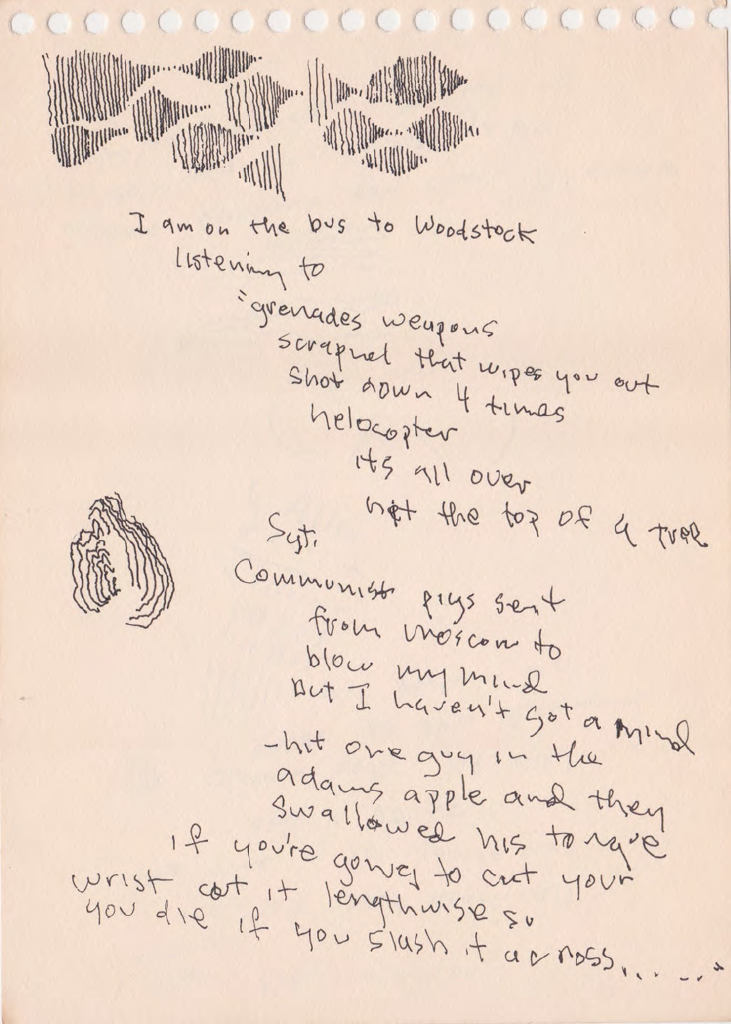 I am on the bus to Woodstock
listening to
"grenades weapons
scrapnel that wipes you out
shot down 4 times
helocopter
its all over
hit the top of a tree
Sgt.
Communist pigs sent
from Moscow to
blow my mind
but I haven't got a mind
-hit one guy in the
adams apple and they
swallowed his tongue
if you're going to cut your
wrist cut it lengthwise so
you die if you slash it across......